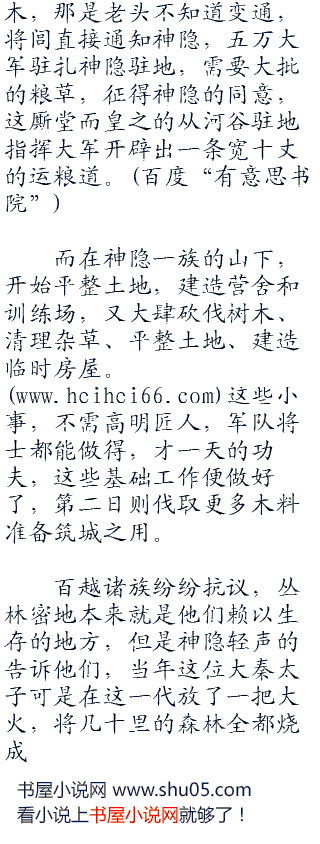 木，那是老头不知道变通，
将闾直接通知神隐，五万大
军驻扎神隐驻地，需要大批
的粮草，征得神隐的同意，
这厮堂而皇之的从河谷驻地
指挥大军开辟出一条宽十丈
的运粮道。(百度“有意思书
院”)
而在神隐一族的山下，
开始平整土地，建造营舍和
训练场，又大肆砍伐树木、
清理杂草、平整土地、建造
临时房屋。
(www.hcihci66.com)这些小
事，不需高明匠人，军队将
士都能做得，才一天的功
夫，这些基础工作便做好
了，第二日则伐取更多木料
准备筑城之用。
百越诸族纷纷抗议，丛
林密地本来就是他们赖以生
存的地方，但是神隐轻声的
告诉他们，当年这位大秦太
子可是在这一代放了一把大
火，将几十里的森林全都烧
成
书屋小说网 www.shu05.com
看小说上书屋小说网就够了！